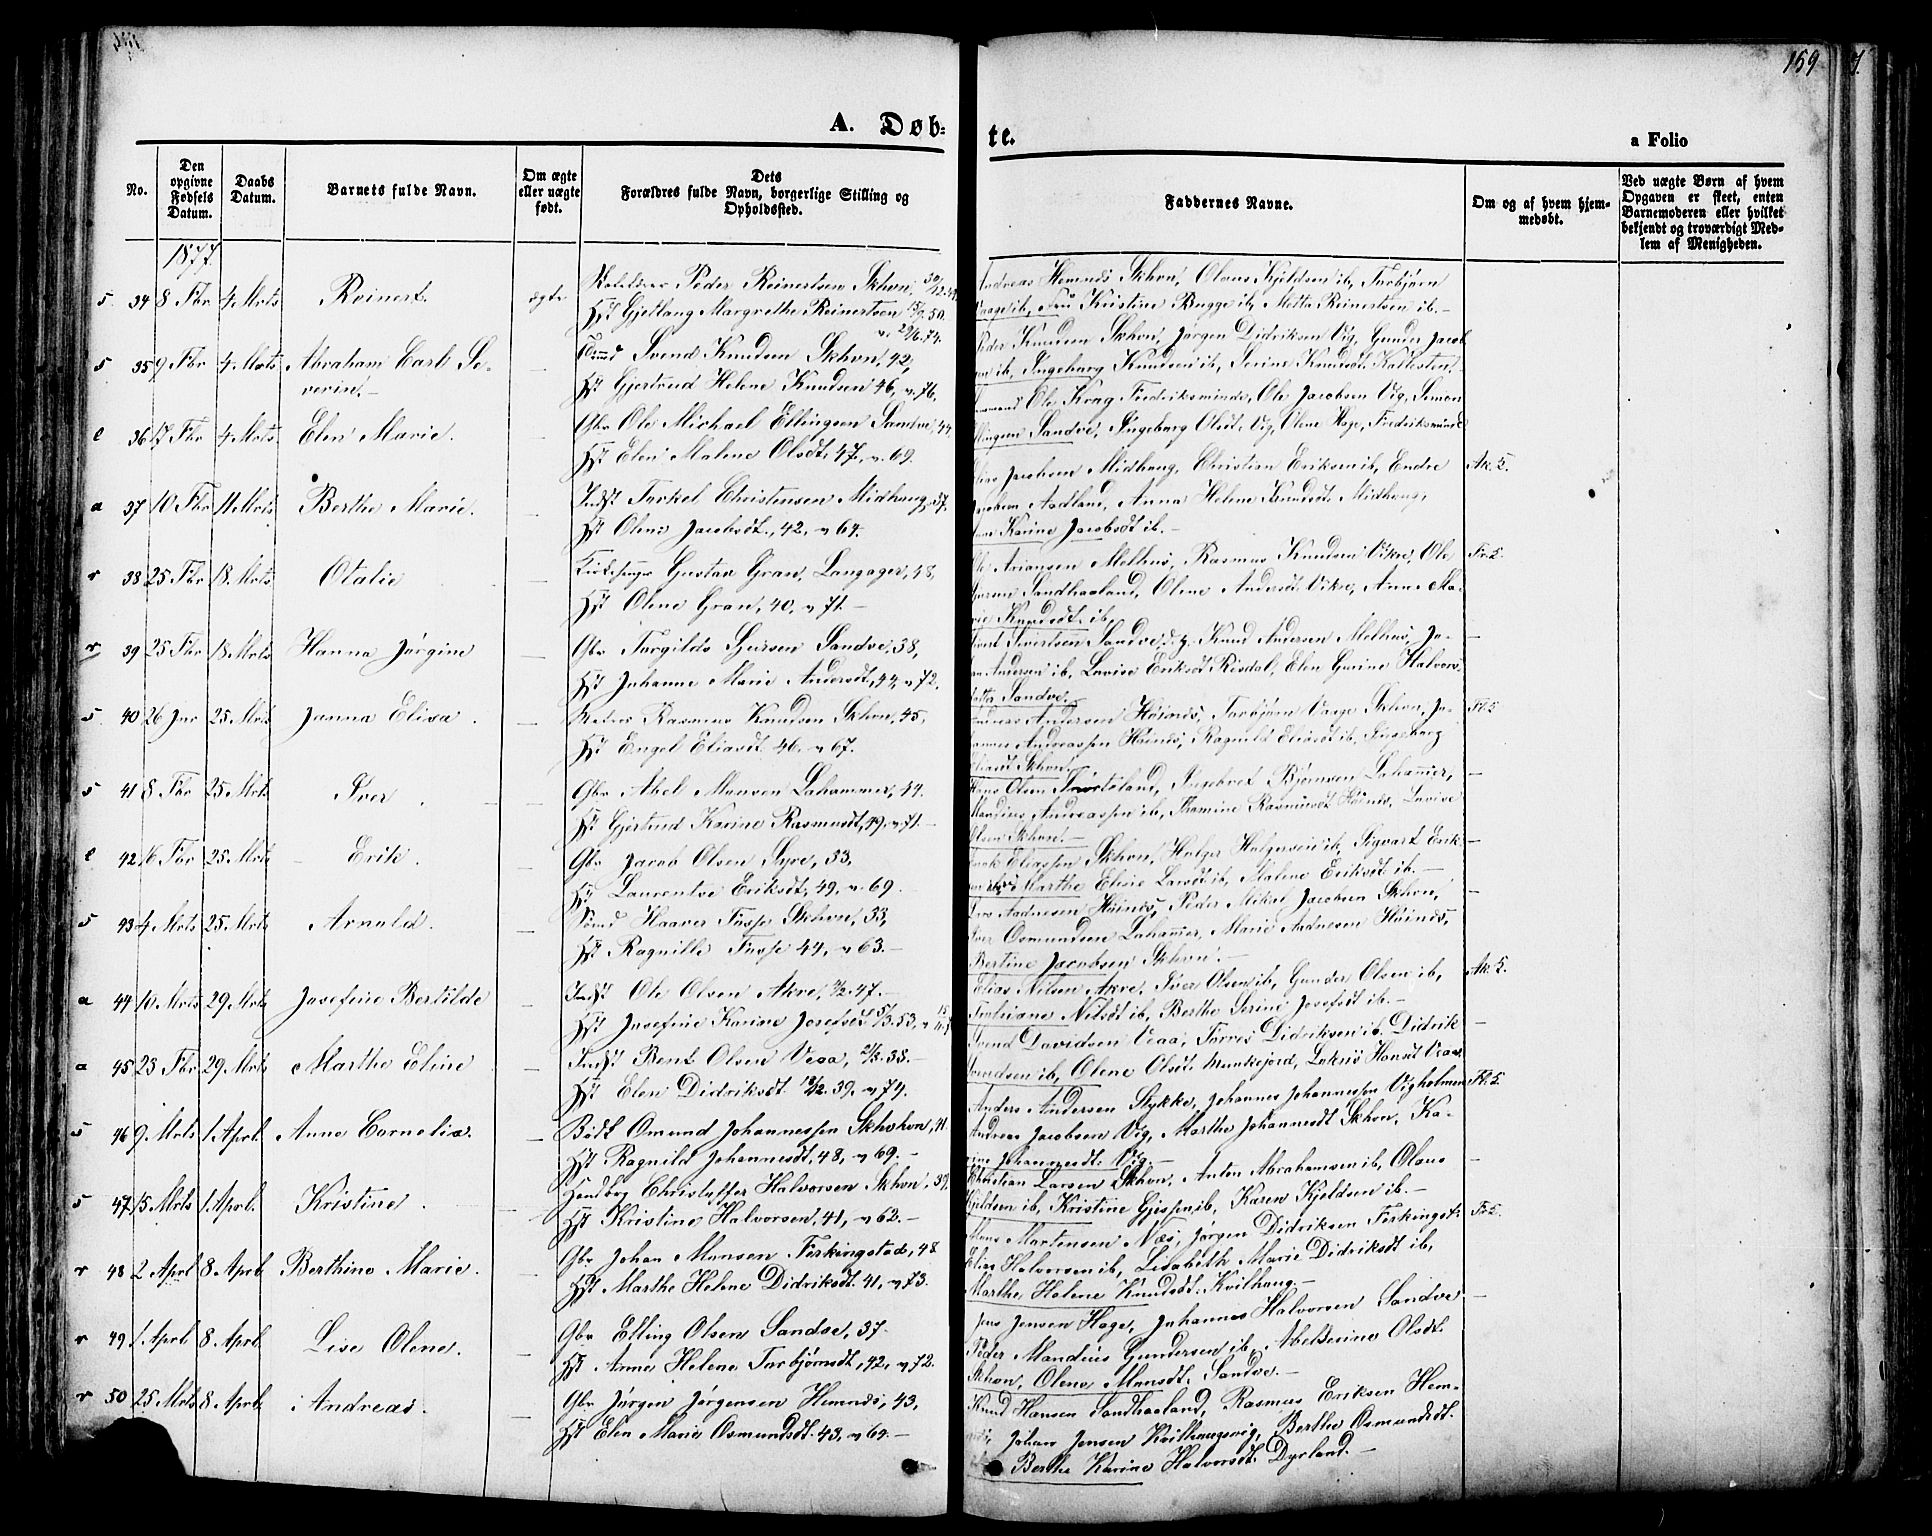 159
A. Døb-
te.
a Folio
No.
Den opgivne Fødsels Datum.
Daabs Datum.
Barnets fulde Navn.
Om ægte eller uægte født.
Dets Forældres fulde Navn, borgerlige Stilling og Opholdssted.
Faddernes Navne.
Om og af hvem hjemmedøbt.
Ved uægte Børn af hvem Opgaven er skeet, enten Barnemoderen eller hvilket bekjendt og troværdigt Medlem af Menigheden.
1877.
5 34 8 Fbr 4 Mrts Reinert ægte Peder Reinertsen Skhvn,
Hst Margrethe Reinertsen
Andreas Hemnes Skhvn, Olaus Kjeldsen ib, Torbjørn
Vaage ib, Fru Kristine Bugge ib, Metta Reinertsen ib.-
5 35 9 Fbr 4 Mrts Abraham Carl Se-
verin.-
Svend Knudsen Skhvn, 42,
Hst Gjertrud Helene Knudsen 46, v. 76,
Peder Knudsen Skhvn, Jørgen Didriksen Vig, Gunder Jacob
sen ib, Ingeborg Knudsen ib, Serine Knudsdt
e 36 17 Fbr 4 Mrts Elen Marie. - Gbr Ole Michael Ellingsen Sandve, 44
Hst Elen Malene Olsdt, 47, v. 69.
Ole Krag Fredriksminde, Ole Jacobsen Vig, Simon
Ellingsen Sandve, Ingeborg Olsdt Vig, Olene Hage, Fredriksminde
a 37 10 Fbr 11 Mrts Berthe Marie. - Indst Torkel Christensen Midhaug, 37.
Hst Oline Jacobsdt., 42, v 64.
Jacobsen Midhaug, Christian Eriksen ib, Endre
Jacobsen Aadland, Anna Helene Knudsdt. Midhaug,
Karine Jacobsdt ib.-
Ak. 5.
r 38 25 Fbr 18 Mrts Otalie - Gustav Gran, Langager, 48,
Hst Olene Gran, 40, v 71.-
Ariansen Melhus, Rasmus Knudsen Vikre, Ole
Sandhaaland, Olene Andersdt Vikre, Anne Ma-
rie Knudsdt. ib,
Fr. 5.
r 39 25 Fbr 18 Mrts Hanna Jørgine - Gbr Torgilds Sjursen Sandve, 38,
Hst Johanne Marie Andersdt, 44, v 72.
Sandve, Knud Andersen Melhus, Jo-
Andersen ib, Lovise Eriksdt Risdal, Elen Gurine Halvors-
datter Sandve.
5 40 26 Jnr 25 Mrts Janna Elisa. - Rasmus Knudsen Skhvn, 45,
Hst Engel Eliasdt. 46. v 67.
Andreas Andersen Høines, Torbjørn Vaage Skhvn, Jo-
hannes Andreassen Høines, Ragnild Eliasdt ib, Ingeborg
Eliasdt Skhvn.
5 41 8 Fbr 25 Mrts Iver. - Gbr Abel Monsen Lahammer, 44.
Hst Gjertrud Karine Rasmusdt, 49, v 71.-
Olsen Ingebret Bjørnsen Lahammer,
Mandius Andreassen ib, Tomine Rasmusdt Høines, Lovise
Olsen Skhvn.-
e 42 16 Fbr 25 Mrts - Erik. Gbr Jacob Olsen Syre, 33,
Hst Laurentse Eriksdt, 49, v. 69.-
Eliassen Skhvn, Holger Holgersen ib, Sigvart Erik-
Marthe Eline Larsdt ib, Malene Eriksdt ib.-
5 43 4 Mrts 25 Mrts Arnold. - Haaver Tusse Skhvn, 33,
Hst Ragnille Tusse 44, v 63.-
Aadnesen Høines, Peder Mikal Jacobsen Skhvn,
Iver Osmundsen Lahamer, Marie Aadnesen Høines,
Bertine Jacobsen Skhvn.-
a 44 10 Mrts 29 Mrts Josefine Bertilde - Indst Ole Olsen Akre, 47.-
Hst Josefine Karine Josefsdt 53, v
Elias Nilsen Akre, Iver Olsen ib, Gunder Olsen ib,
Nilsdt ib, Berthe Serine Josefsdt ib.-
Ak. 5.
a 45 23 Fbr 29 Mrts Marthe Eline - Indst Bent Olsen Veaa, 38.-
Hst Elen Didriksdt 39, v 74.
Svend Davidsen Veaa, Torres Didriksen ib. Didrik
Svendsen ib, Olene Olsdt. Munkejord, Lukris Hansdt Veaa.
5 46 9 Mrts 1. Aprl. Anne Cornelia. - Bødk Omund Johannessen Skhvn, 41.
Hst Ragnild Johannesdt, 48, v 69.-
Anders Andersen Stykke, Johannes Johannessen Vigholmen
Andreas Jacobsen Vig, Marthe Johannesdt Skhvn, Ka-
rine Johannesdt: Vig.-
Fl. 5.
5 47 15 Mrts 1. Aprl. Kristine. - Christoffer Halvorsen Skhvn, 39.
Hst Kristine Halvorsen, 41, v 62.-
Christian Larsen Skhvn, Anton Abrahamsen ib, Olaus
Kjeldsen ib, Kristine Gjessen ib, Karen Kjeldsen ib.-
r 48 2 Aprl 8 Aprl. Berthine Marie. - Gbr Johan Monsen Ferkingstad, 48
Hst Marthe Helene Didriksdt. 41, v 73.
Mons Martensen Næs, Jørgen Didriksen Ferkingst.
Elias Halvorsen ib, Lisabeth Marie Didriksdt ib,
Marthe Helene Knudsdt: Kvilhaug.-
Fr 5.
r 49 1. Aprl. 8 Aprl. Lise Olene. - Gbr Elling Olsen Sandve, 37.
Hst Anne Helene Torbjørnsdt, 42, v 72.
Jens Jensen Hage, Johannes Halvorsen Sandve
Peder Mandius Gundersen ib, Abelserine Olsdt.
Skhvn, Olene Monsdt. Sandve.-
r 50 25 Mrts 8 Aprl. Andreas. - Gbr Jørgen Jørgensen Hemnes, 43,
Hst Elen Marie Osmundsdt. 43, v 69.-
Knud Hansen Sandhaaland, Rasmus Eriksen Hem-
nes, Johan Jensen Kvilhaugsvig, Berthe Osmundsdt.
Berthe Karine Halvorsdt. Dyrland.-